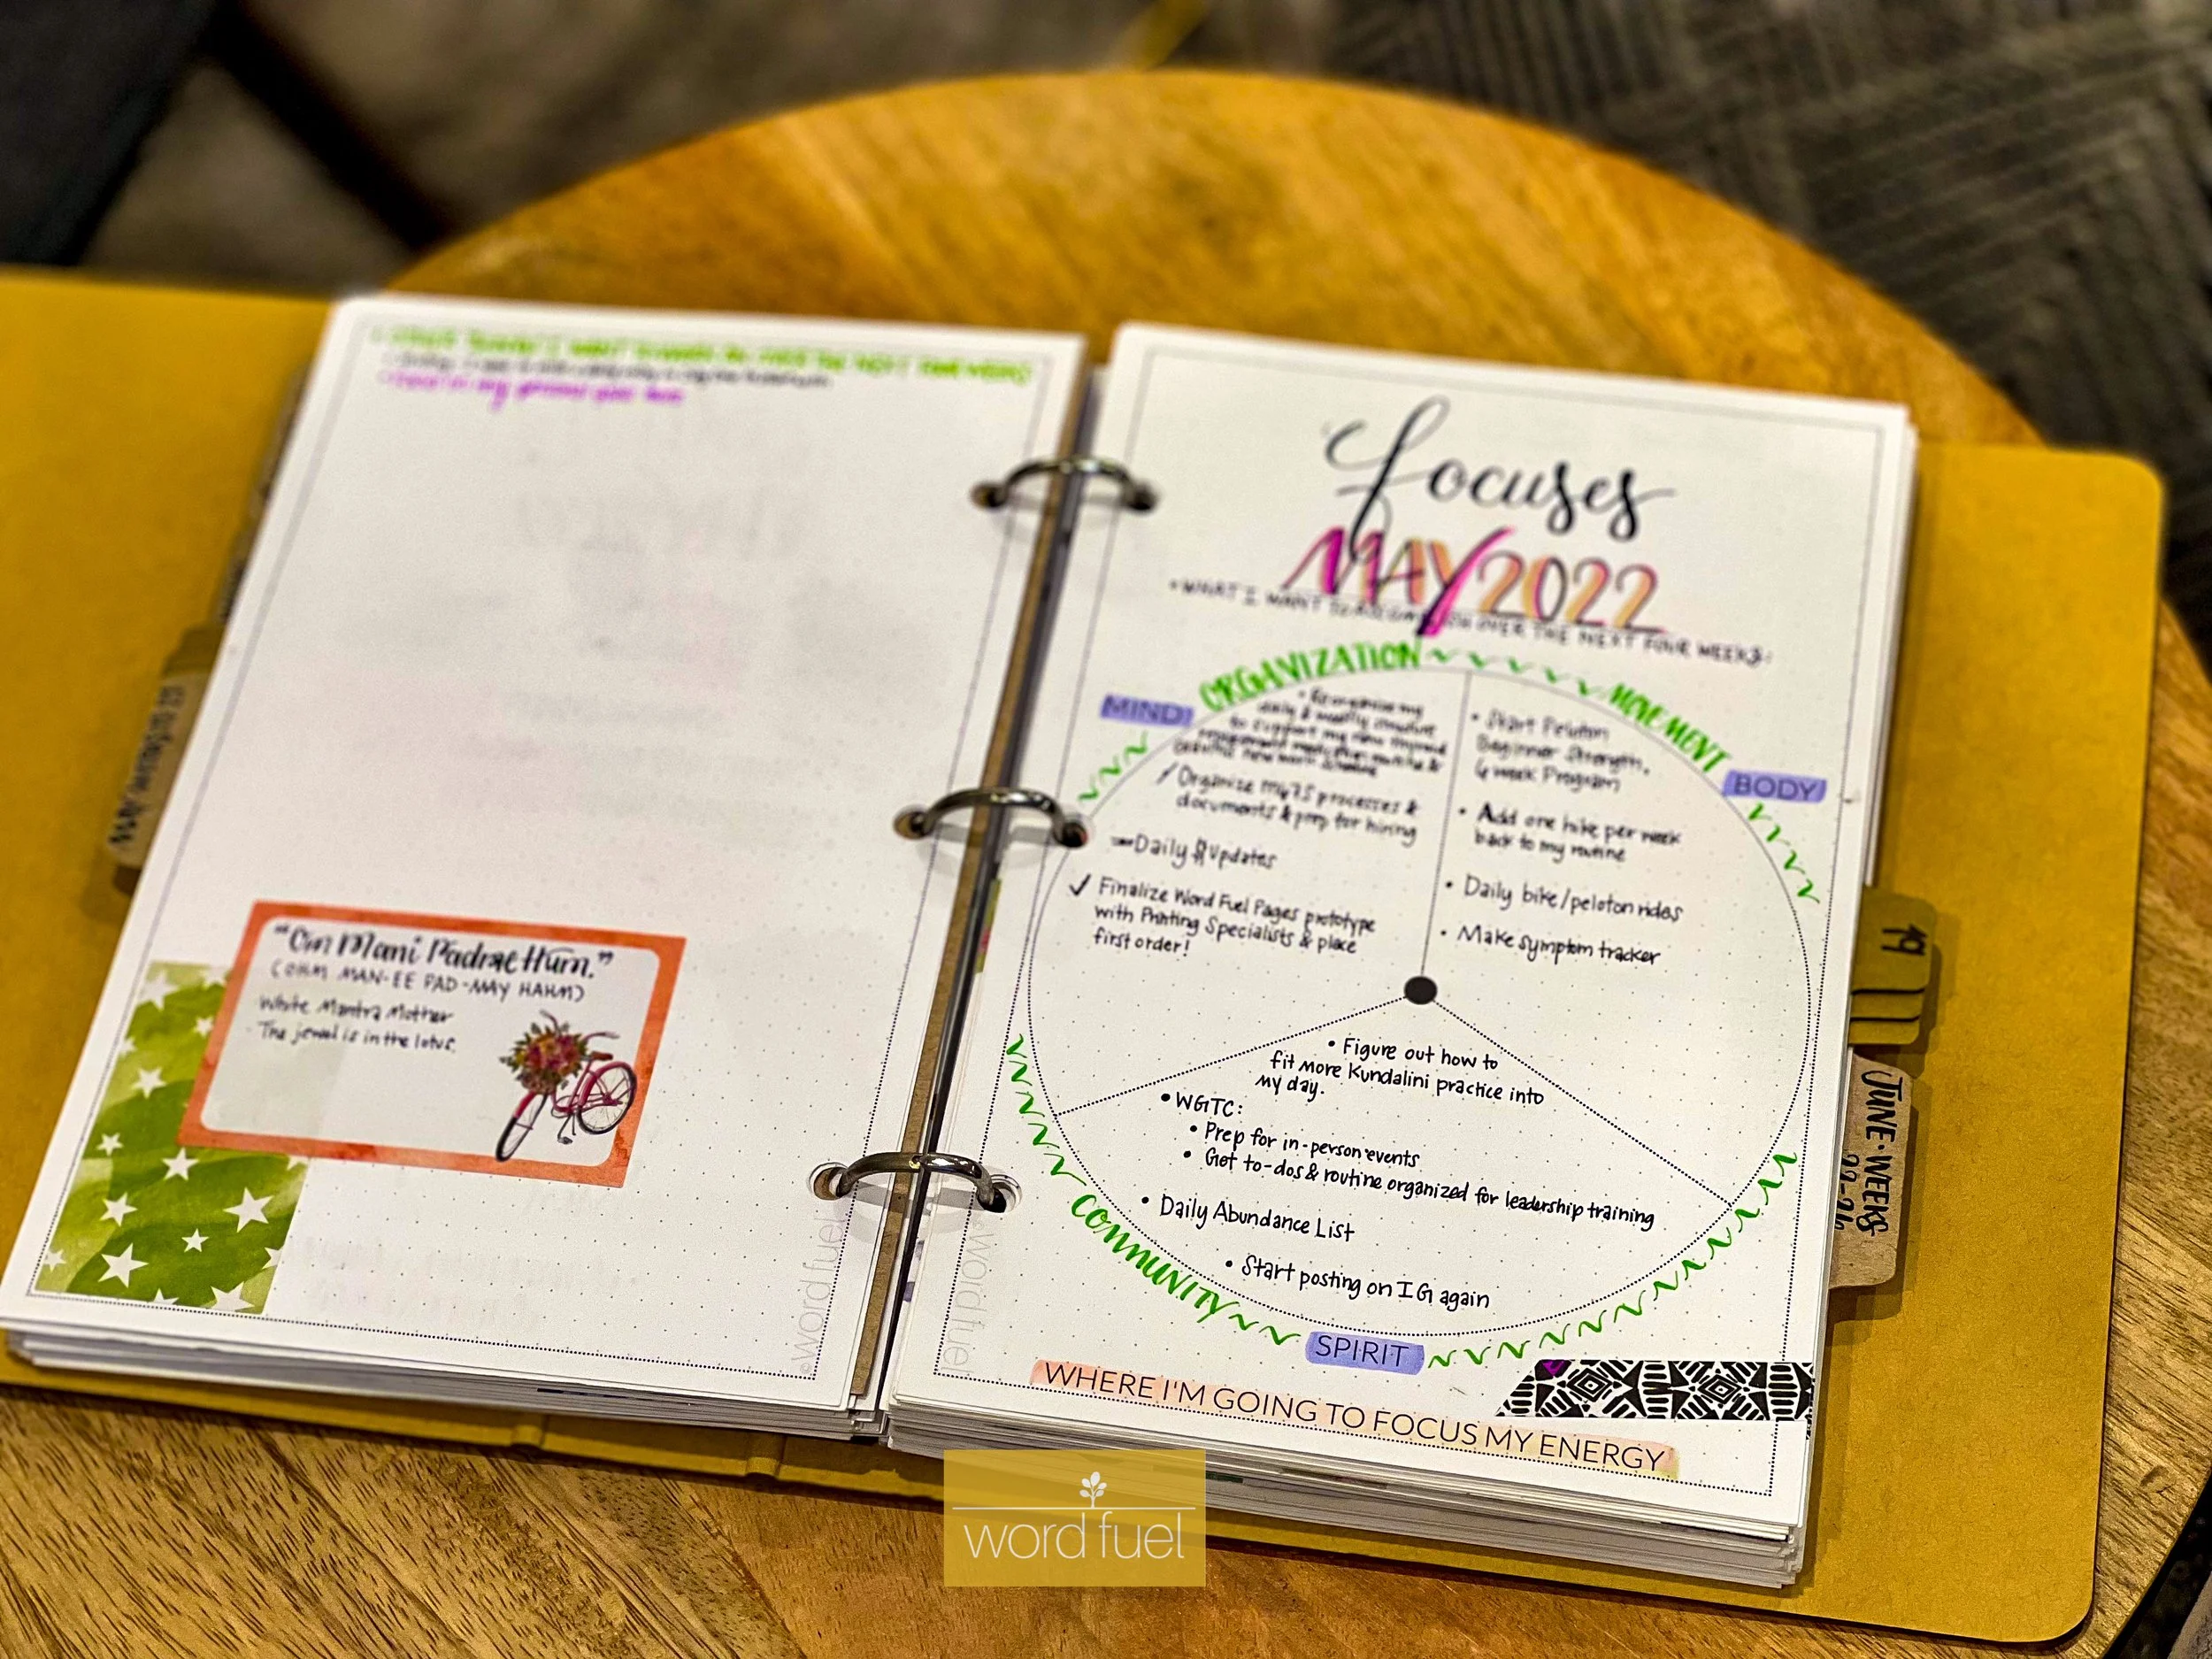 "Om Mani Padme Hum."
(OHM MAN-EE PAD-MAY HAHM)
White Mantra Mother
The jewel is in the lotus.
©word fuel
focuses
MAY 2022
• WHAT I WANT TO FOCUS ON OVER THE NEXT FOUR WEEKS:
ORGANIZATION
MIND
• Reorganize my
daily & weekly
to support my new
Organize my 7S processes &
documents & prep for hiring
Daily Updates
✓ Finalize Word Fuel Pages prototype
with Printing Specialists & place
first order!
MOVEMENT
BODY
• Start Peloton
Beginner Strength,
week Program
• Add one hike per week
back to my routine
• Daily bike/peloton rides
• Make symptom tracker
• Figure out how to
fit more Kundalini practice into
my day.
• WGTC:
• Prep for in-person events
• Get to-dos & routine organized for leadership training
• Daily Abundance List
• Start posting on IG again
COMMUNITY
SPIRIT
WHERE I'M GOING TO FOCUS MY ENERGY
©word fuel
19
JUNE • WEEKS
22-26
word fuel